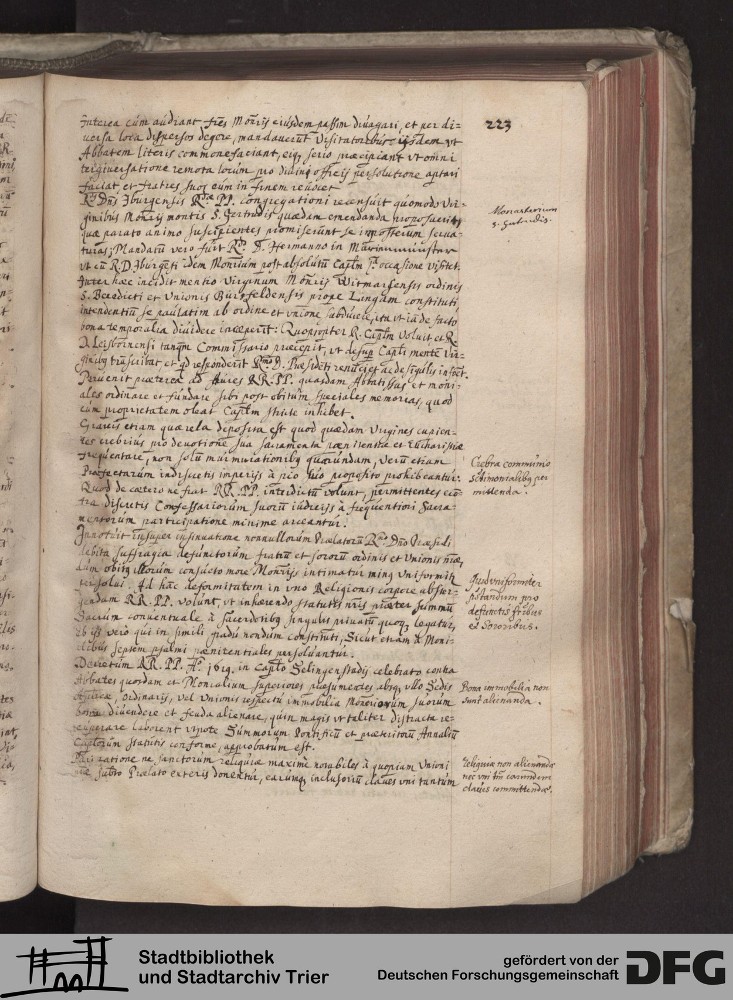 223
Interea cúm audiant, frẽs Monrÿ eiusdem passim diuagari, et per di=
uersa loca dispersos degere, mandauerũt Visitatoribus ijsdem vt
Abbatem literis commonefaciant, eiq, serio præcipiant vt omni
tergiuersatione remota locum pro diuinis officijs persolutione aptari
faciat et fratres suos eum in finem reuocet
Rᵈ Dn̄s Jburgensis PP. congregationi recensuit quomodo Vir=
ginibus Monrÿ montis S. Gertrudis quædam emendanda proposuerit
quæ parato animo suscipientes promiserunt se imposterum serua=
turas; Mandatũ vero fuit D. Hermanno in
vt cũ R.D. Jburgẽsi idem Monrium post absolutũ Caplm occasione visitet.
Inter hæc incidit mentio Virginum Monrÿ Witmarsensis ordinis
S. Benedicti et Vnionis Bursfeldensis prope Lingam constituti
intendentiũ se paulatim ab ordine et vnione subducere, ita vt iã de facto
bona temporalia diuidere inceperint: Quapropter R. Caplm voluit et R.
D. Leisbornensi tanqm Commissario præcepit, vt desup Capli mentẽ Vir=
ginibq trãscribat et qd responderit D. Præsidẽti
Peruenit præterea ad Aures RR. PP. quasdam Abbatissas et moni=
ales ordinare et fundare sibi post obitum speciales memorias, quod
cúm proprietatem oleat Caplm stricte inhibet.
Grauis etiam quærela deposita est quod quædam Virgines cupien=
tes crebrius pro deuotione sua Sacramenta pœnitentiæ et Echaristiæ
frequentare, non solũ murmurationibq quarundam, verũ etiam
Præfectarum indiscretis imperijs à pio suo proposito prohibeantur.
Quod de cætero ne fiat RR. PP. interdictũ volunt, permittentes
discretis Confessariorum suorum iudicijs à frequentiori Sacra=
mentorum participatione minime arceantur.
Innotuit insuper insinuatione nonnullorum Prælatorũ Dno Præsidi
debita suffragia defunctorum fratrũ et sororũ ordinis et Vnionis nr̃æ,
dum obitq illorum consueto more Monrijs intimatur minq vniformitr
persolui. Ad hãc deformitatem in vno Religionis corpore abster=
gendam RR. PP. volunt, vt inhærendo statutis nr̃is præter summũ
Sacrum conuentuale à sacerdotibq singulis priuatũ quoq, legatur,
ab ijs vero qui in simili gradu nondum constituti, Sicut etiam à Moni=
alibus septem psalmi pœnitentiales persoluantur.
Decretum RR. PP. Aᵒ. 1619. in Caplo Selingenstadij celebrato contra
Abbates quosdam et Monialium superiores præsumentes absq, vllo Sedis
Aplicæ, Ordinarij, vel Vnionis respectu immobilia Monriorum suorum
bona diuendere et feuda alienare, quin magis vt taliter distracta re=
cuperare laborent vtpote Summorum Pontificũ et præteritorũ Annaliũ
Capitulorum statutis conforme, approbatum est.
Pari ratione ne sanctorum reliquiæ maximè notabiles à quopiam Vnioni
nræ subdito Prælato exteris donentur, earumq, inclusoriũ claues vni tantùm
Monasterium
S. Gertrudis.
Crebra communio
Sctimonialibq per
mittenda.
Quid vniformiter
pstandum pro
defunctis fribus
et Sororibus.
Bona immobilia non
sunt alienanda.
reliquiæ non alienandæ
nec vni tm earundem
claues committendæ.
Stadtbibliothek
und Stadtarchiv Trier
gefördert von der
Deutschen Forschungsgemeinschaft
DFG